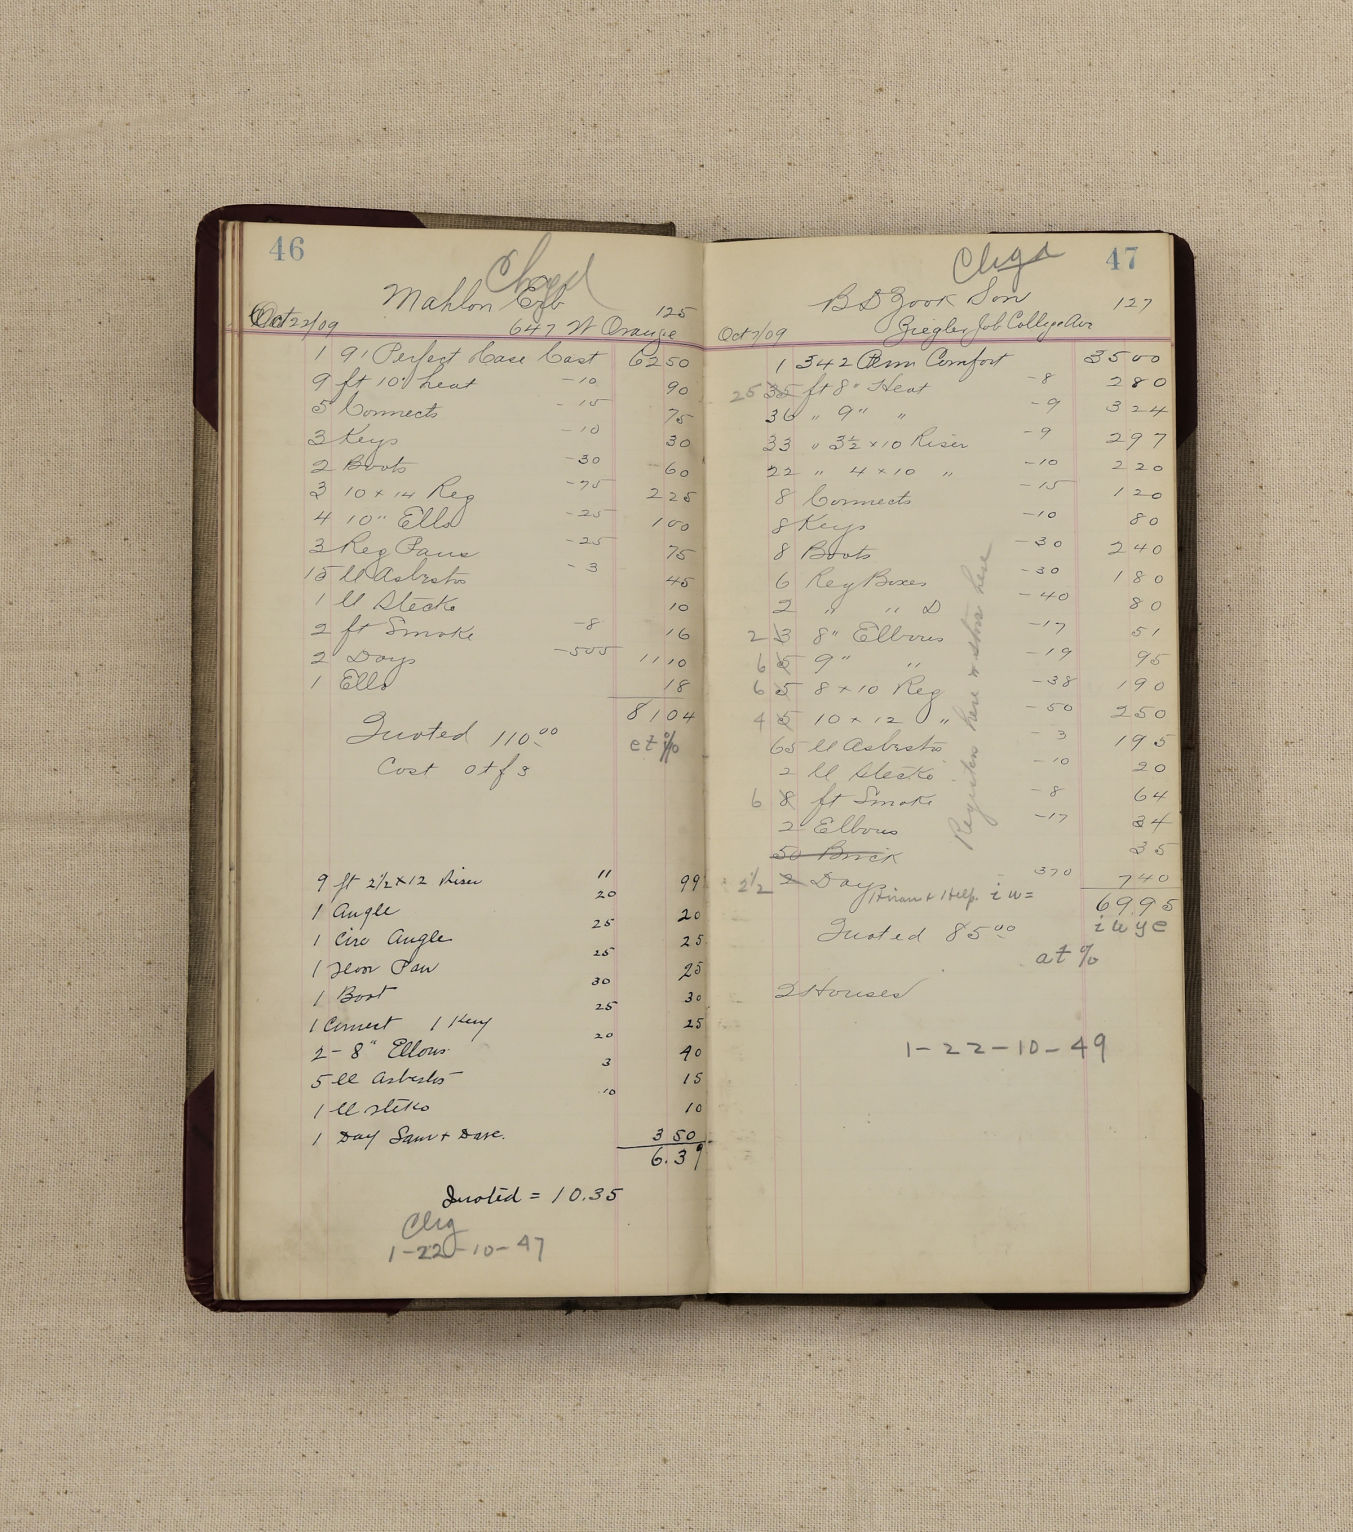 46
Chgd
Mahlon Erb 125
Oct 22/09 647 W Orange
1 9" Perfect Case Cast 62 50
9 ft 10" heat -10 90
5 Connects -15 75
3 Keys -10 30
2 Boots -30 60
3 10 x 14 Reg -75 2 25
4 10" Ells -25 1 00
3 Reg Pans -25 75
15 ll Asbestos -3 45
1 ll Stecko 10
2 ft Smoke -8 16
2 Days -505 11 10
1 Ells 18
81 04
Quoted 110.00 et %
Cost
9 ft 2 1/2 x 12 Riser 11 99
1 Angle 20 20
1 Circ Angle 25 25
1 Pan 25 25
1 Boot 30 30
1 Connect 1 Key 25 25
2 - 8" Ellows 20 40
5 ll Asbestos 3 15
1 ll steko 10 10
1 Day Sam + Dave. 3 50
6.39
Quoted = 10.35
Chg
1-22-10-47
47
Chgd
B D Zook Son 127
Oct 2/09 Ziegler Job College Ave
1 342 Penn Comfort 35 00
25 35 ft 8" Heat -8 2 80
36 " 9" " -9 3 24
33 " 3 1/2 x 10 Riser -9 2 97
22 " 4 x 10 " -10 2 20
8 Connects -15 1 20
8 Keys -10 80
8 Boots -30 2 40
6 Reg Boxes -30 1 80
2 " " D -40 80
2 3 8" Elbows -17 51
6 5 9" " -19 95
6 5 8 x 10 Reg -38 1 90
4 5 10 x 12 " -50 2 50
65 ll Asbestos - 3 1 95
2 ll Stecko -10 20
6 8 ft Smoke -8 64
2 Elbows -17 34
50 Brick 35
2 1/2 2 Days 370 7 40
Hiram & Help. i w = 69.95
Quoted 85.00 i w y e
at %
2 Houses
1-22-10-49
Registers here